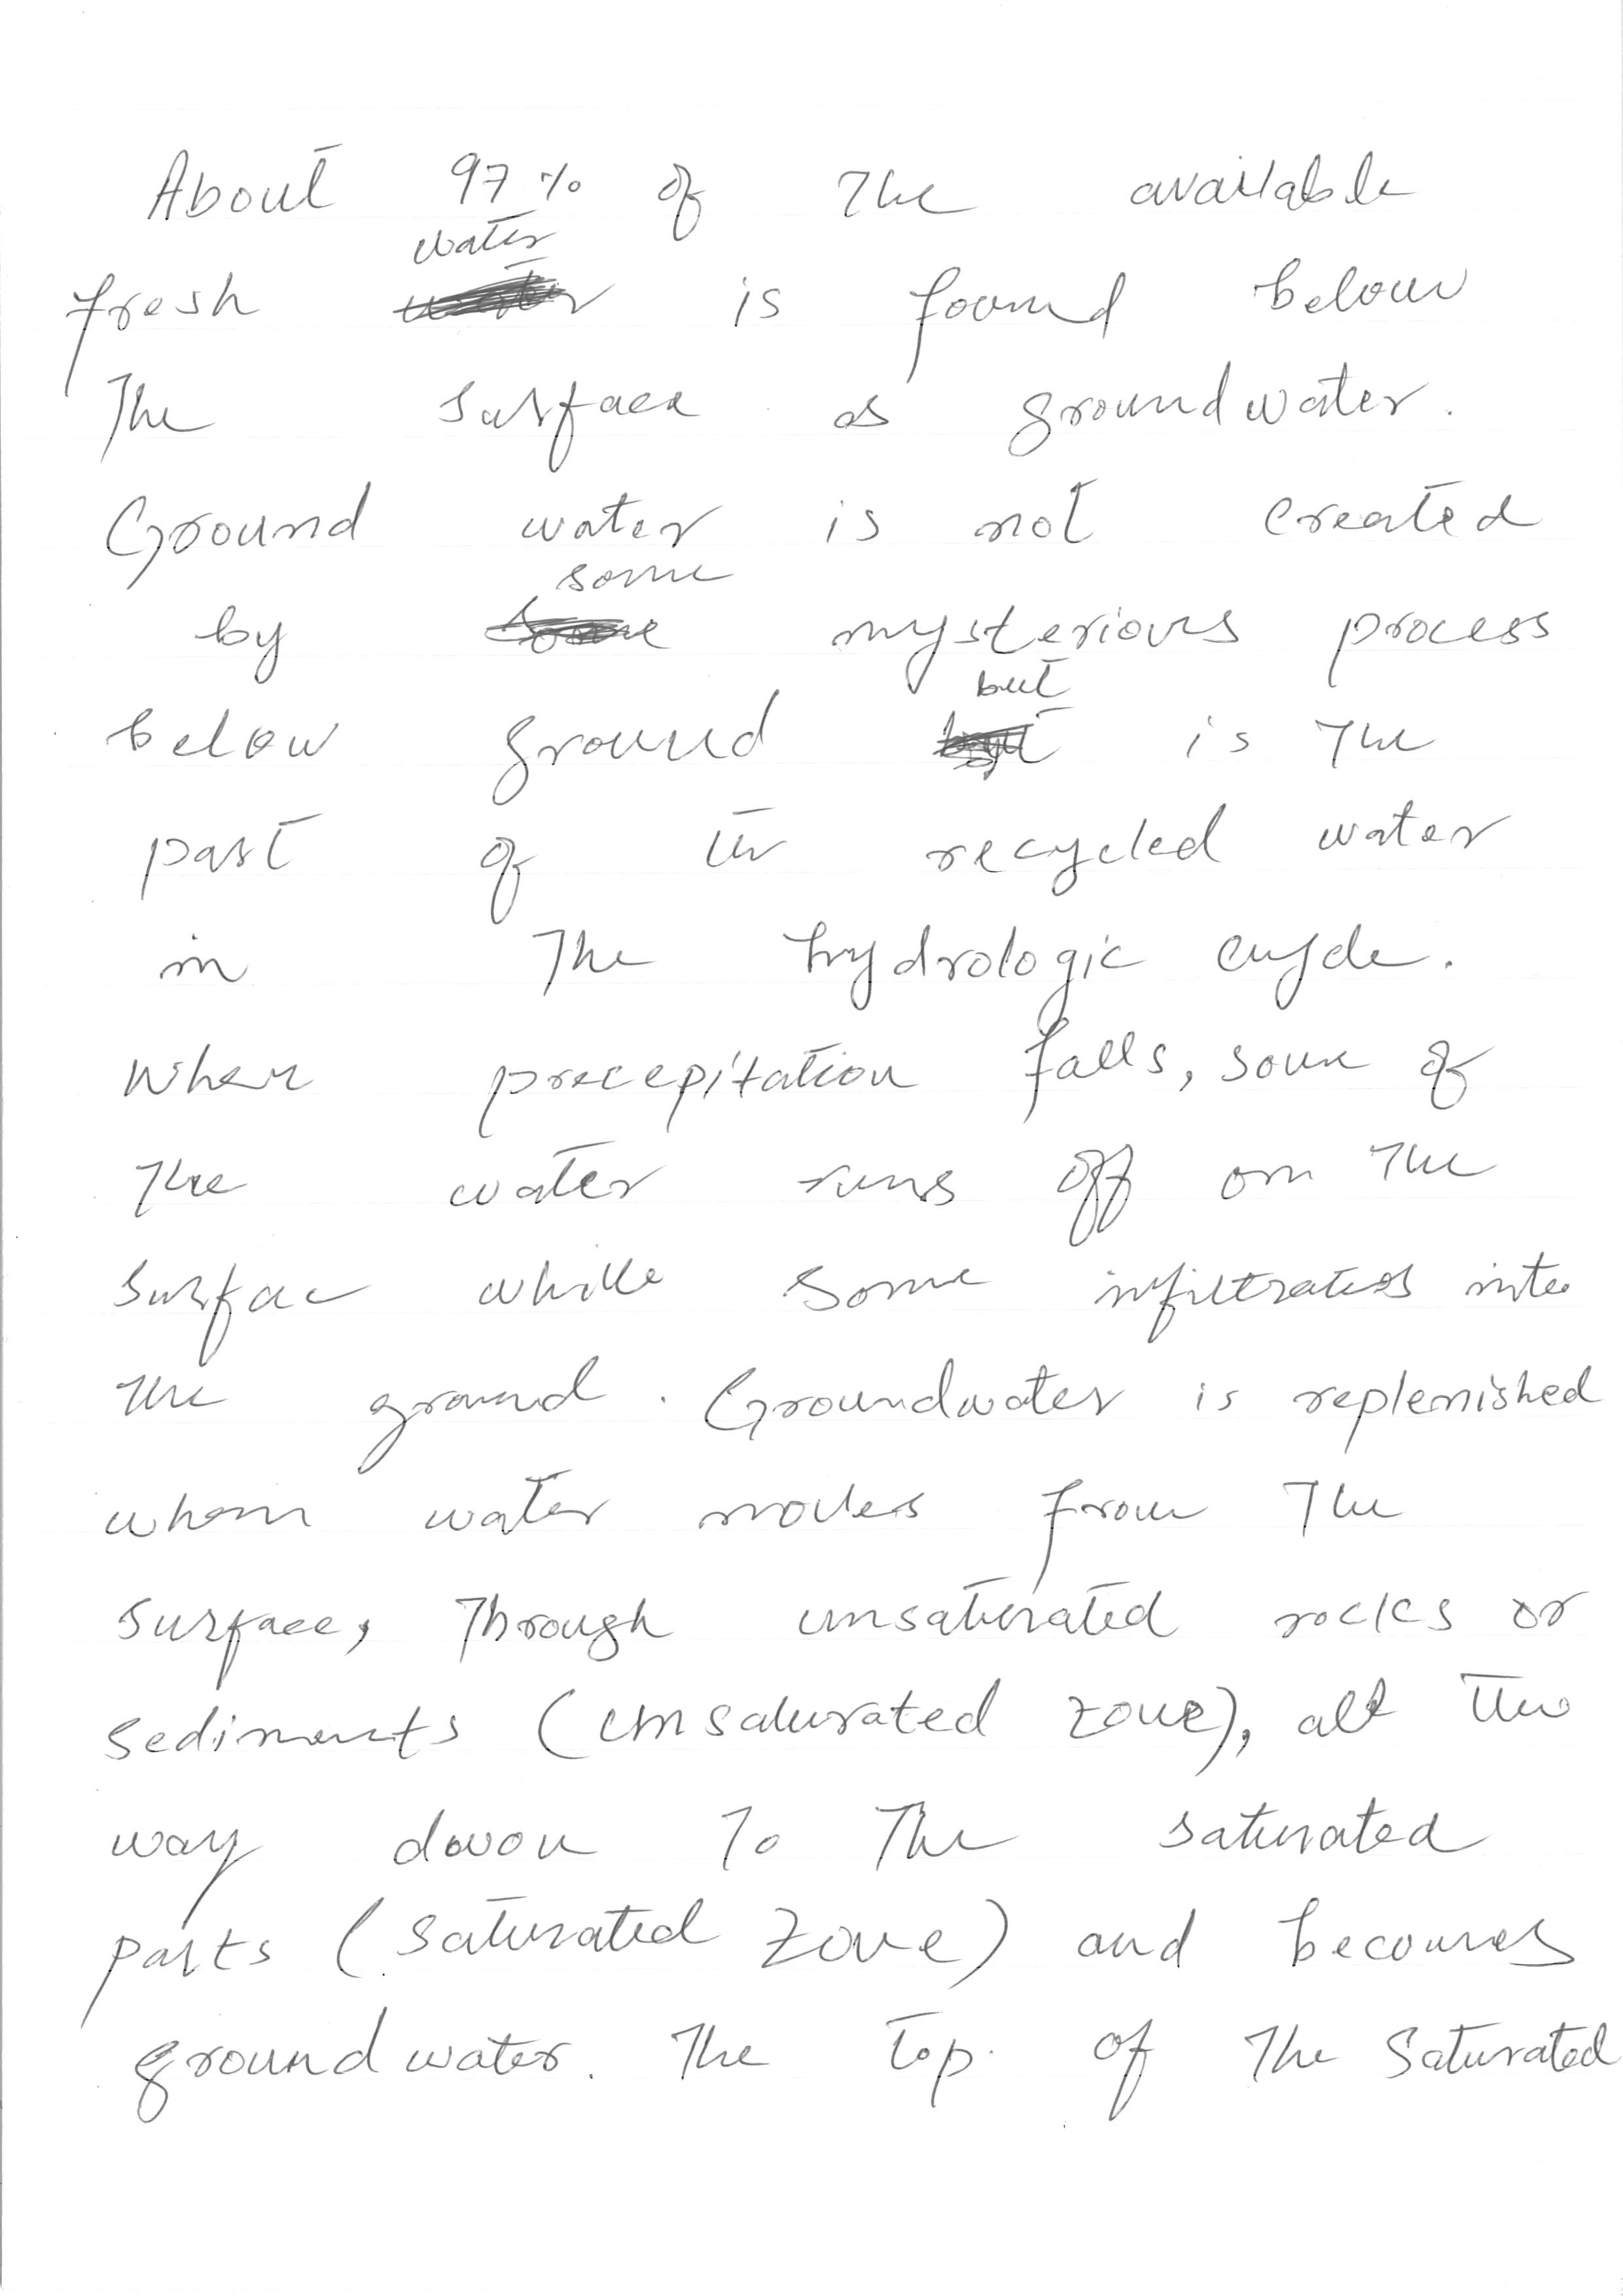 About 97% of the available
fresh water is found below
the surface as groundwater.
Ground water is not created
by some mysterious process
below ground but is the
part of the recycled water
in the hydrologic cycle.
When precepitation falls, some of
the water runs off on the
surfac while some infiltrates into
the ground. Groundwater is replenished
when water moves from the
surface, through unsaturated rocks or
sediments (unsaturated zone), all the
way down to the saturated
parts (saturated zone) and becomes
groundwater. The top of the saturated